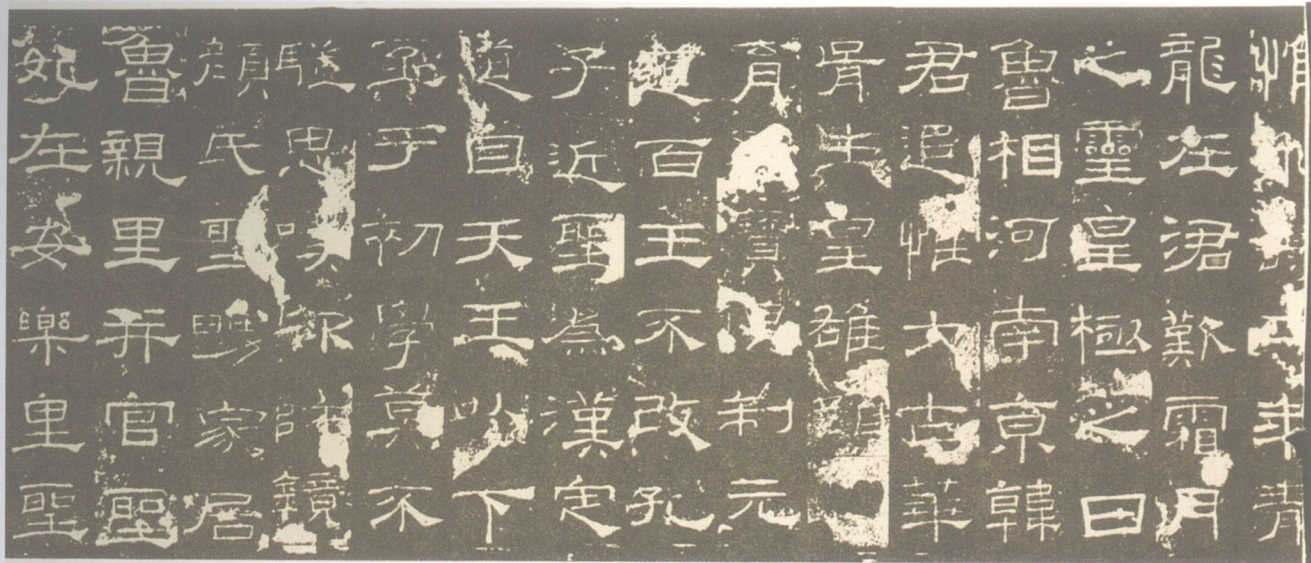 惟永壽二年青
龍在涒歎霜月
之靈皇極之日
魯相河南京韓
君追惟大古華
胥生皇雄顏
育寶俱制元
道百王不改孔
子近聖為漢定
道自天王以下
至于初學莫不
驥思嘆卬師鏡
顏氏聖舅家居
魯親里并官聖
妃在安樂里聖